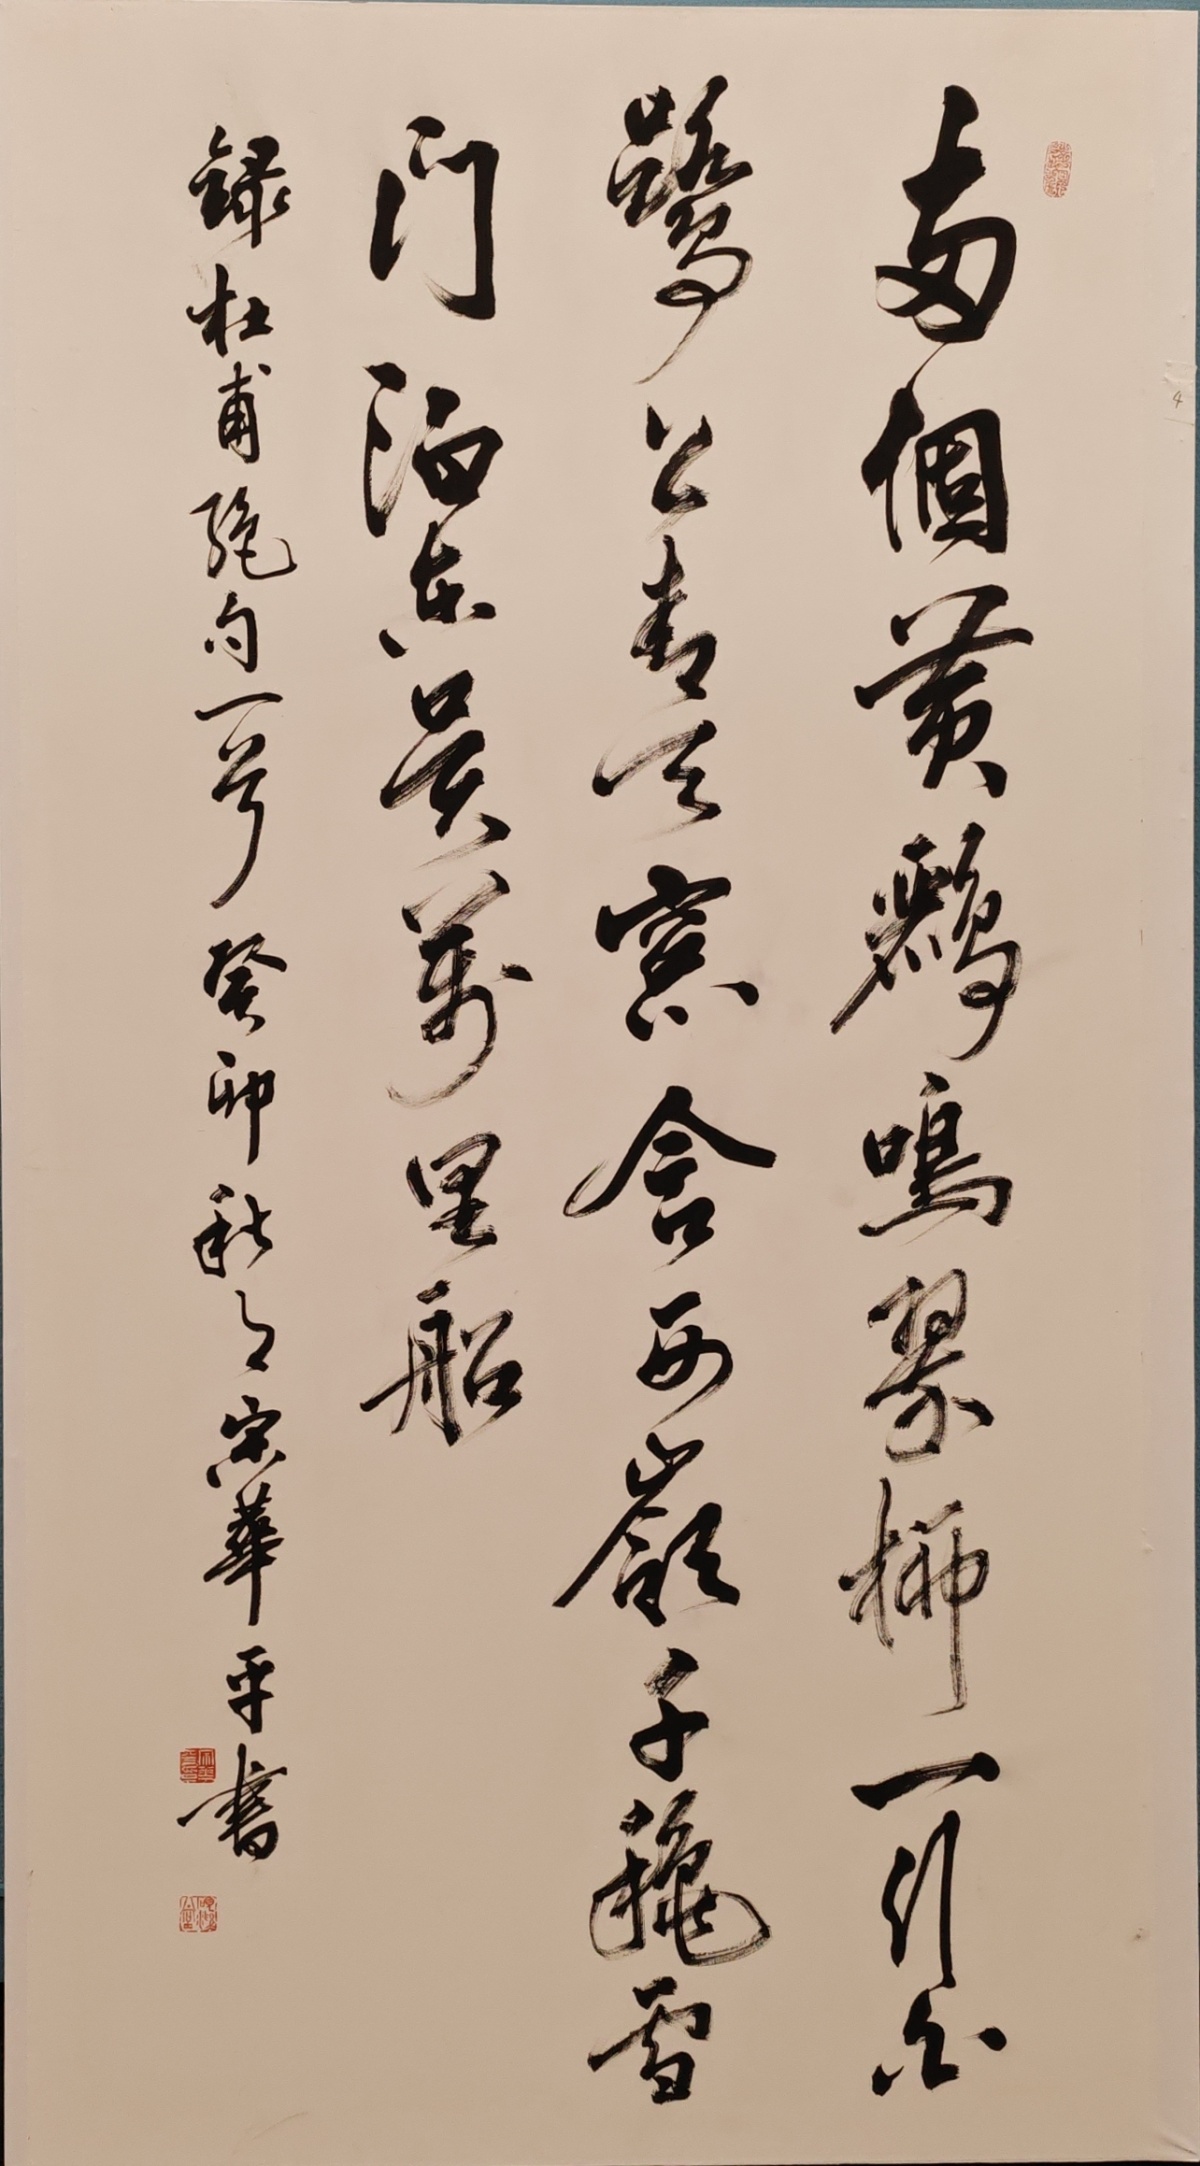 两個黄鸝鳴翠柳一行白
鹭上青天窓含西嶺千龝雪
门泊東吴萬里船
録杜甫绝句一首癸卯秋月宗華平书
4